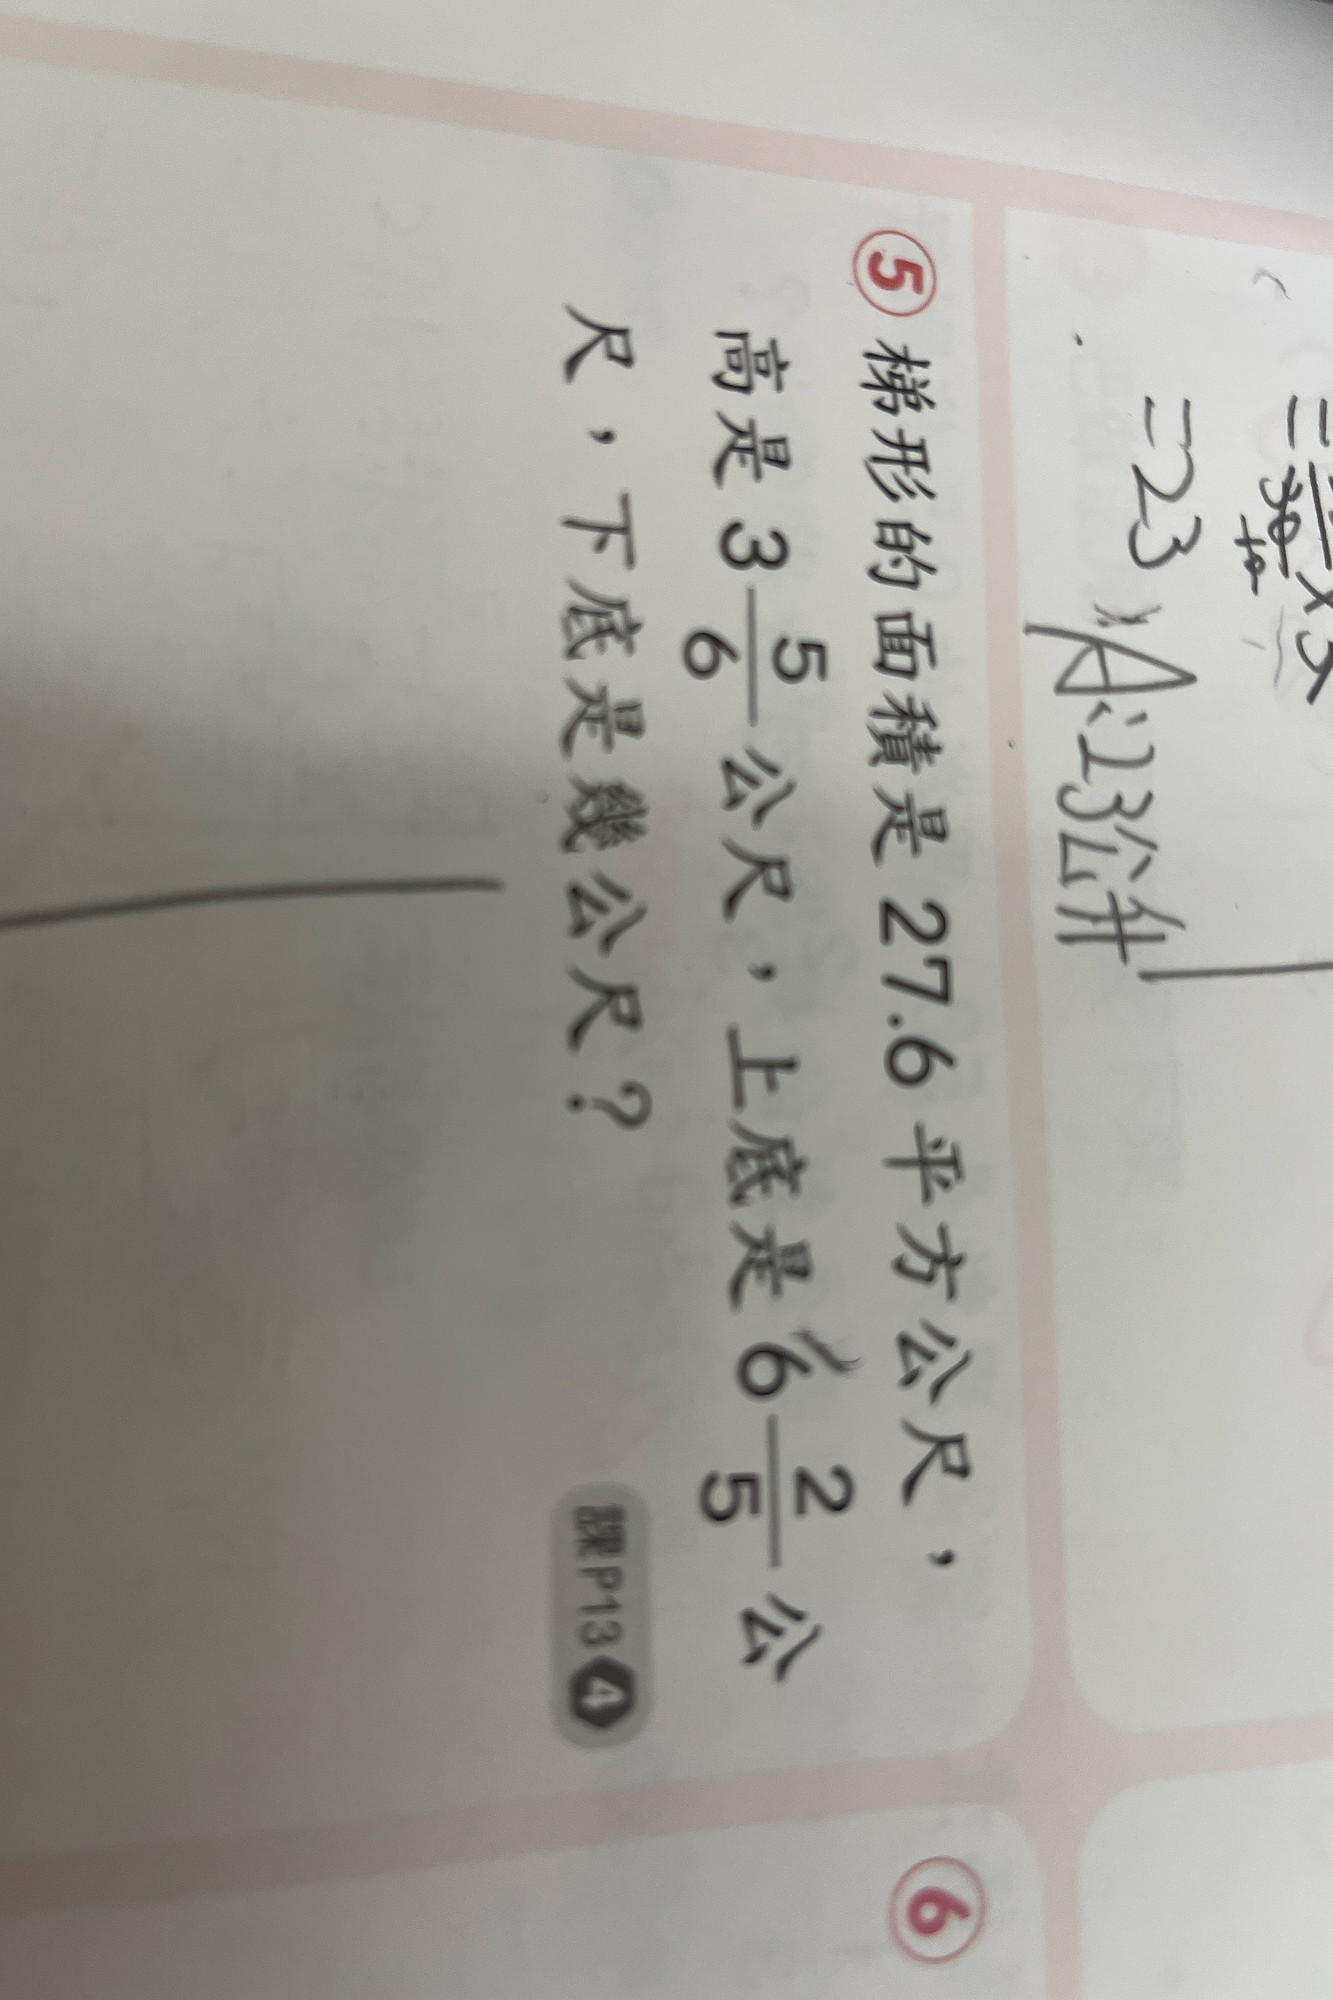 =23 A:23公升
⑤ 梯形的面積是 27.6 平方公尺，
高是 3 5/6 公尺，上底是 6 2/5 公
尺，下底是幾公尺？
課P13 4
⑥